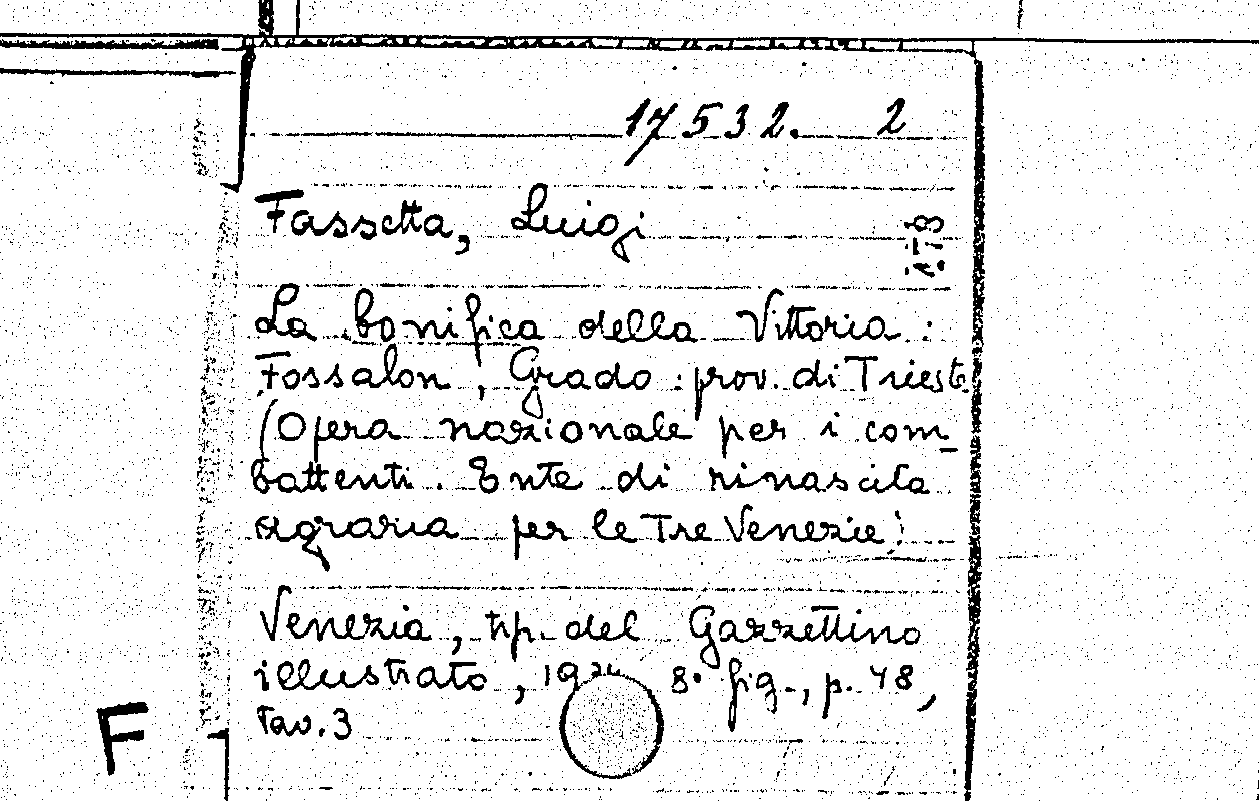 17532. 2
Fassetta, Luigi
178
La bonifica della Vittoria:
Fossalon, Grado: prov. di Trieste
(Opera nazionale per i com-
battenti. Ente di rinascita
agraria per le Tre Venezie)
Venezia, tip. del Gazzettino
illustrato, 8° fig., p. 48,
tav. 3
F